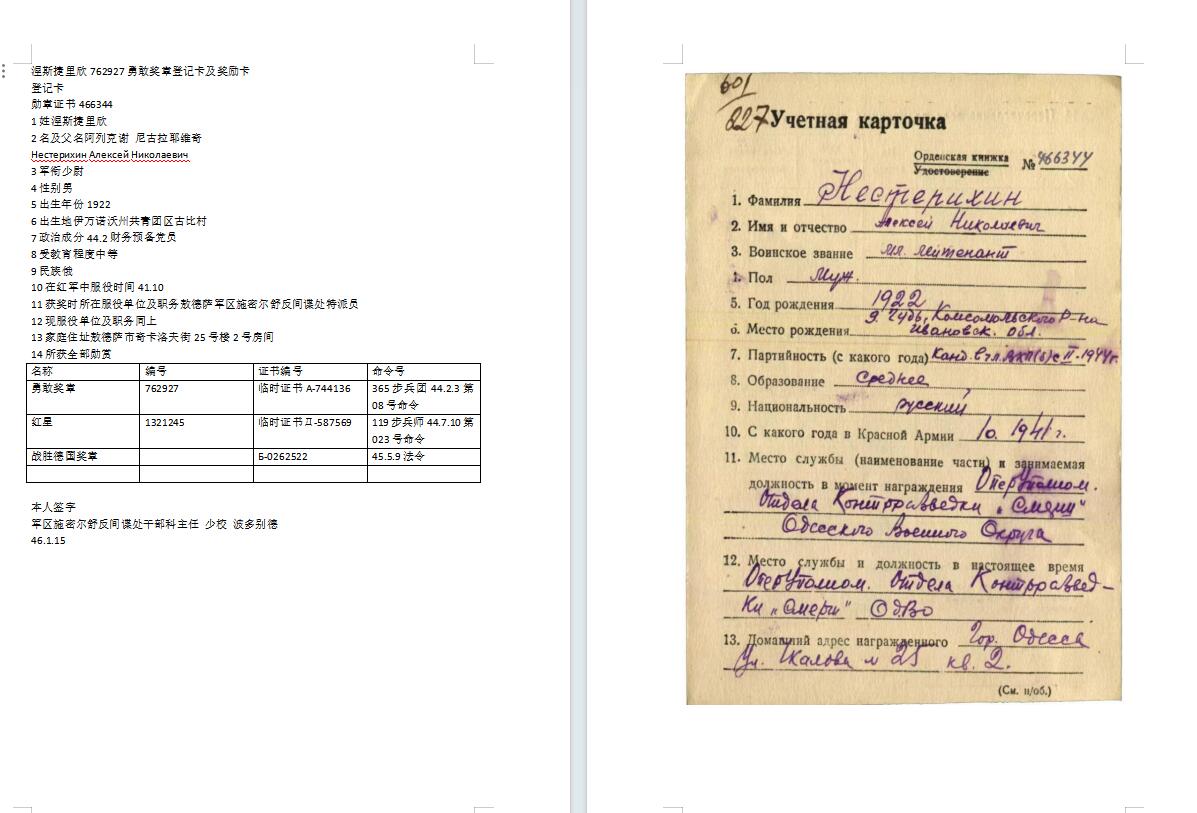 涅斯捷里欣 762927 勇敢奖章登记卡及奖励卡
登记卡
勋章证书 466344
1 姓涅斯捷里欣
2 名及父名阿列克谢 尼古拉耶维奇
Нестерихин Алексей Николаевич
3 军衔少尉
4 性别男
5 出生年份 1922
6 出生地伊万诺沃州共青团区古比村
7 政治成分 44.2 财务预备党员
8 受教育程度中等
9 民族俄
10 在红军中服役时间 41.10
11 获奖时所在服役单位及职务敖德萨军区施密尔舒反间谍处特派员
12 现服役单位及职务同上
13 家庭住址敖德萨市奇卡洛夫街 25 号楼 2 号房间
14 所获全部勋赏
名称 编号 证书编号 命令号
勇敢奖章 762927 临时证书 А-744136 365 步兵团 44.2.3 第
08 号命令
红星 1321245 临时证书 Д-587569 119 步兵师 44.7.10 第
023 号命令
战胜德国奖章 Б-0262522 45.5.9 法令
本人签字
军区施密尔舒反间谍处干部科主任 少校 波多别德
46.1.15
601
827
Учетная карточка
Орденская книжка
Удостоверение № 466344
1. Фамилия Нестерихин
2. Имя и отчество Алексей Николаевич
3. Воинское звание мл. лейтенант
4. Пол Муж.
5. Год рождения 1922
д. Губь, Комсомольского р-на
6. Место рождения Ивановск. обл.
7. Партийность (с какого года) Канд. в чл. ВКП(б) с II-1944г.
8. Образование Среднее
9. Национальность русский
10. С какого года в Красной Армии 10. 1941 г.
11. Место службы (наименование части) и занимаемая
должность в момент награждения Оперуполном.
Отдела Контрразведки „Смерш"
Одесского Военного Округа
12. Место службы и должность в настоящее время
Оперуполном. Отдела Контрразвед-
ки „Смерш" ОдВО
13. Домашний адрес награжденного Гор. Одесса
ул. Чкалова № 25 кв. 2.
(См. н/об.)